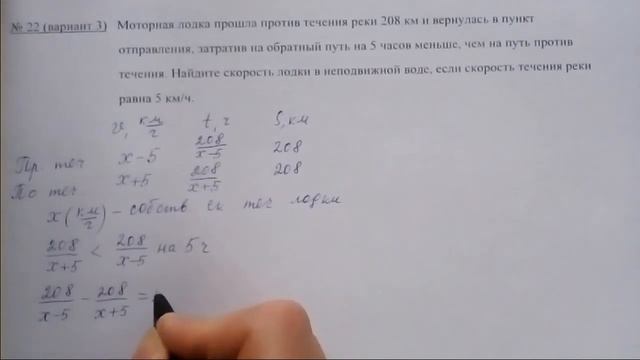 № 22 (вариант 3) Моторная лодка прошла против течения реки 208 км и вернулась в пункт
отправления, затратив на обратный путь на 5 часов меньше, чем на путь против
течения. Найдите скорость лодки в неподвижной воде, если скорость течения реки
равна 5 км/ч.
v, км/г t, г S, км
Пр теч x-5 208/x-5 208
По теч x+5 208/x+5 208
x (км/г) – собств теч лодки
208/x+5 < 208/x-5 на 5 г
208/x-5 - 208/x+5 =